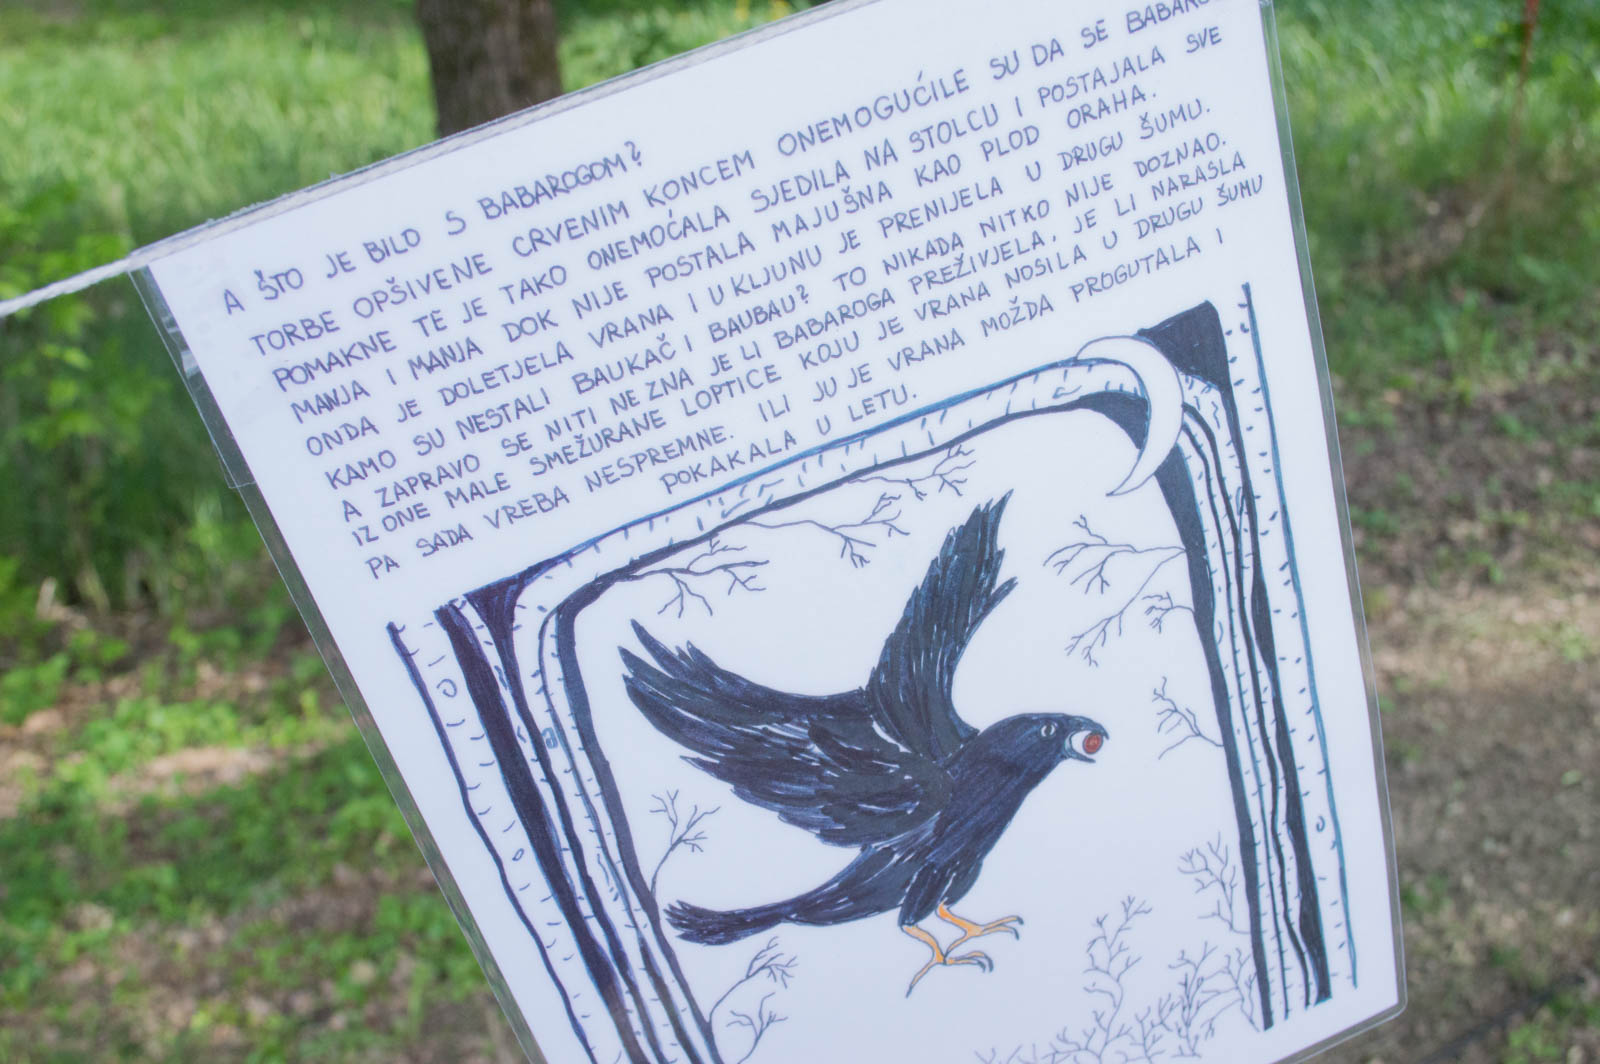 A ŠTO JE BILO S BABAROGOM?
TORBE OPŠIVENE CRVENIM KONCEM ONEMOGUĆILE SU DA SE
POMAKNE TE JE TAKO ONEMOĆALA SJEDILA NA STOLCU I POSTAJALA SVE
MANJA I MANJA DOK NIJE POSTALA MAJUŠNA KAO PLOD ORAHA.
ONDA JE DOLETJELA VRANA I U KLJUNU JE PRENIJELA U DRUGU ŠUMU.
KAMO SU NESTALI BAUKAČ I BAUBAU? TO NIKADA NITKO NIJE DOZNAO.
A ZAPRAVO SE NITI NE ZNA JE LI BABAROGA PREŽIVJELA. JE LI NARASLA
IZ ONE MALE SMEŽURANE LOPTICE KOJU JE VRANA NOSILA U DRUGU ŠUMU
PA SADA VREBA NESPREMNE. ILI JU JE VRANA MOŽDA PROGUTALA I
POKAKALA U LETU.